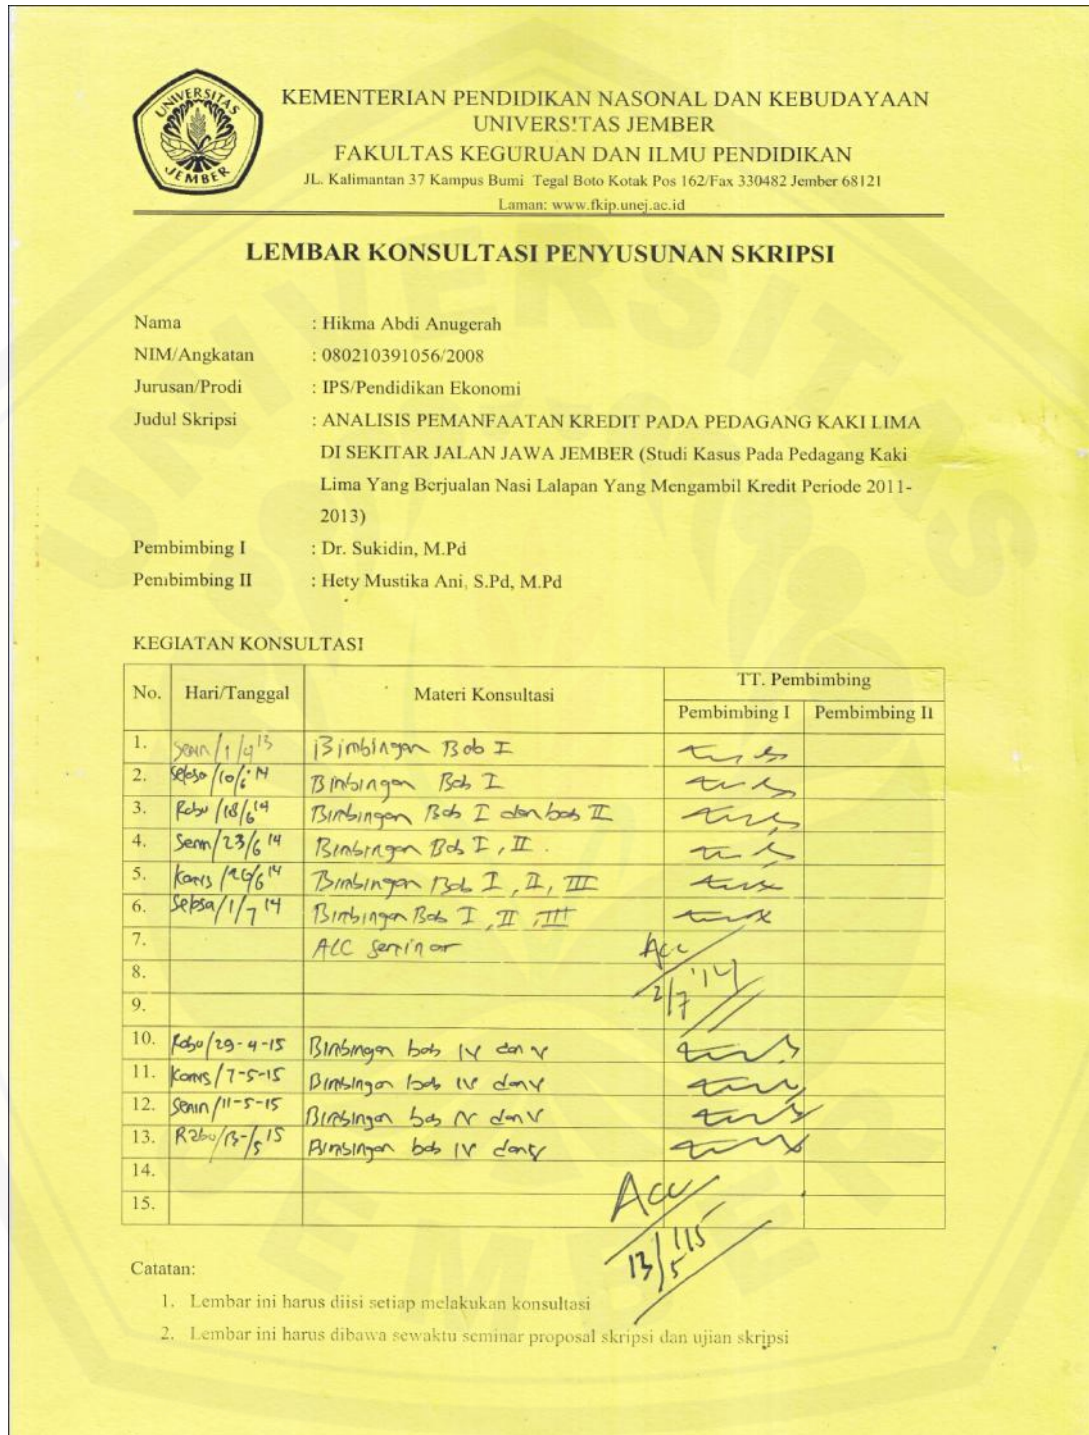 UNIVERSITAS
JEMBER
KEMENTERIAN PENDIDIKAN NASONAL DAN KEBUDAYAAN
UNIVERSITAS JEMBER
FAKULTAS KEGURUAN DAN ILMU PENDIDIKAN
JL. Kalimantan 37 Kampus Bumi Tegal Boto Kotak Pos 162/Fax 330482 Jember 68121
Laman: www.fkip.unej.ac.id
LEMBAR KONSULTASI PENYUSUNAN SKRIPSI
Nama : Hikma Abdi Anugerah
NIM/Angkatan : 080210391056/2008
Jurusan/Prodi : IPS/Pendidikan Ekonomi
Judul Skripsi : ANALISIS PEMANFAATAN KREDIT PADA PEDAGANG KAKI LIMA
DI SEKITAR JALAN JAWA JEMBER (Studi Kasus Pada Pedagang Kaki
Lima Yang Berjualan Nasi Lalapan Yang Mengambil Kredit Periode 2011-
2013)
Pembimbing I : Dr. Sukidin, M.Pd
Pembimbing II : Hety Mustika Ani, S.Pd, M.Pd
KEGIATAN KONSULTASI
No. Hari/Tanggal Materi Konsultasi TT. Pembimbing
Pembimbing I Pembimbing II
1. Senin/1/4 13 Bimbingan Bab I
2. Selasa/10/6 14 Bimbingan Bab I
3. Rabu/18/6 14 Bimbingan Bab I dan bab II
4. Senin/23/6 14 Bimbingan Bab I, II.
5. Kamis/26/6 14 Bimbingan Bab I, II, III
6. Selasa/1/7 14 Bimbingan Bab I, II, III
7. ACC Seminar Acc
8. 2/7 '14
9.
10. Rabu/29-4-15 Bimbingan bab IV dan V
11. Kamis/7-5-15 Bimbingan bab IV dan V
12. Senin/11-5-15 Bimbingan bab IV dan V
13. Rabu/13-/5 15 Bimbingan bab IV dan V
14. Acc
15.
13/5 '15
Catatan:
1. Lembar ini harus diisi setiap melakukan konsultasi
2. Lembar ini harus dibawa sewaktu seminar proposal skripsi dan ujian skripsi